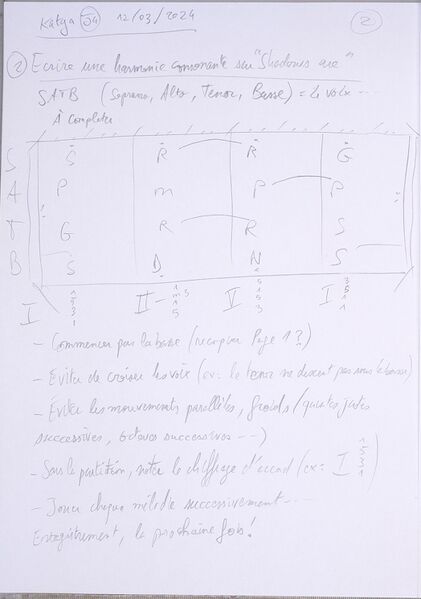 Katya 54 12/03/2024
2
② Ecrire une harmonie consonante sur "Shadows are"
SATB (Soprano, Alto, Tenor, Basse) = 4 voix ...
À Completer
S Ṡ Ṙ Ṙ Ġ
A P m P P
T G R R S
B S Ḍ N S
I II- V I
- Commencer par la basse (recopier Page 1?)
- Eviter de croiser les voix (ex: le tenor ne descent pas sous la basse)
- Éviter les mouvements parallèles, froids / quintes justes
successives, octaves successives ...)
- Sous la partition, noter le chiffrage d'accord (ex: I
- Jouer chaque mélodie successivement ...
Enregistrement, la prochaine fois!